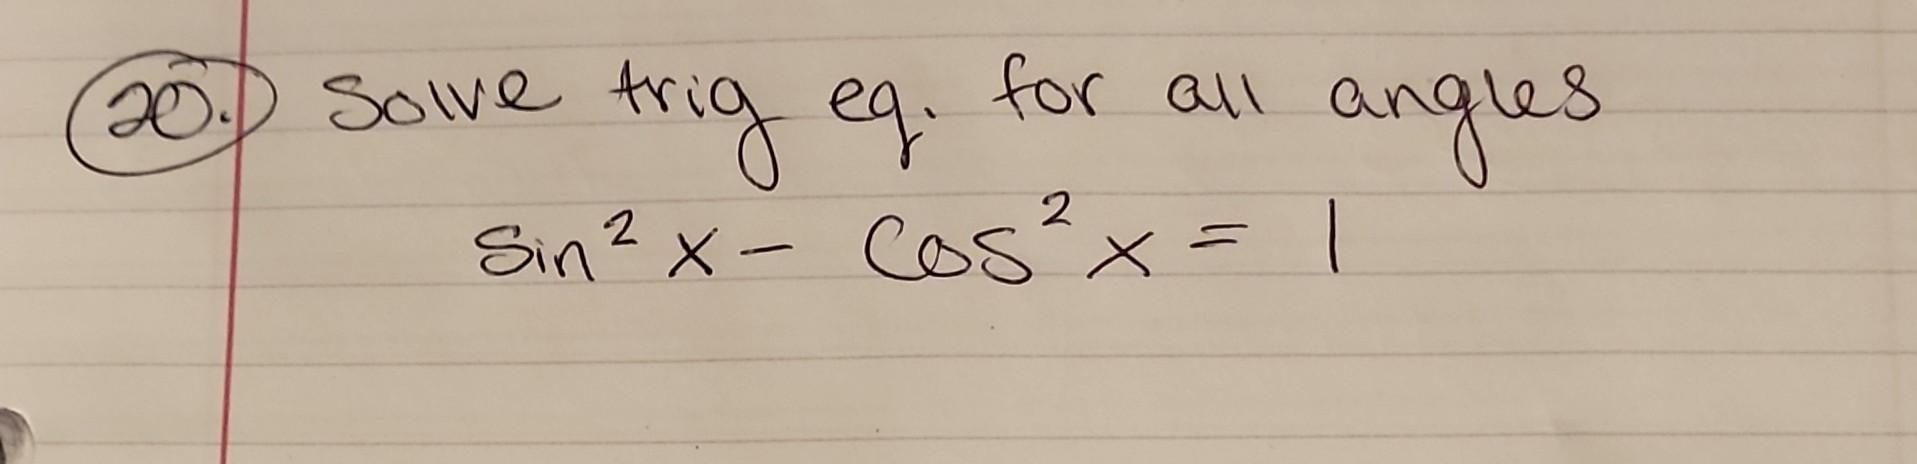 20. Solve trig eq. for all angles
sin² x - cos² x = 1